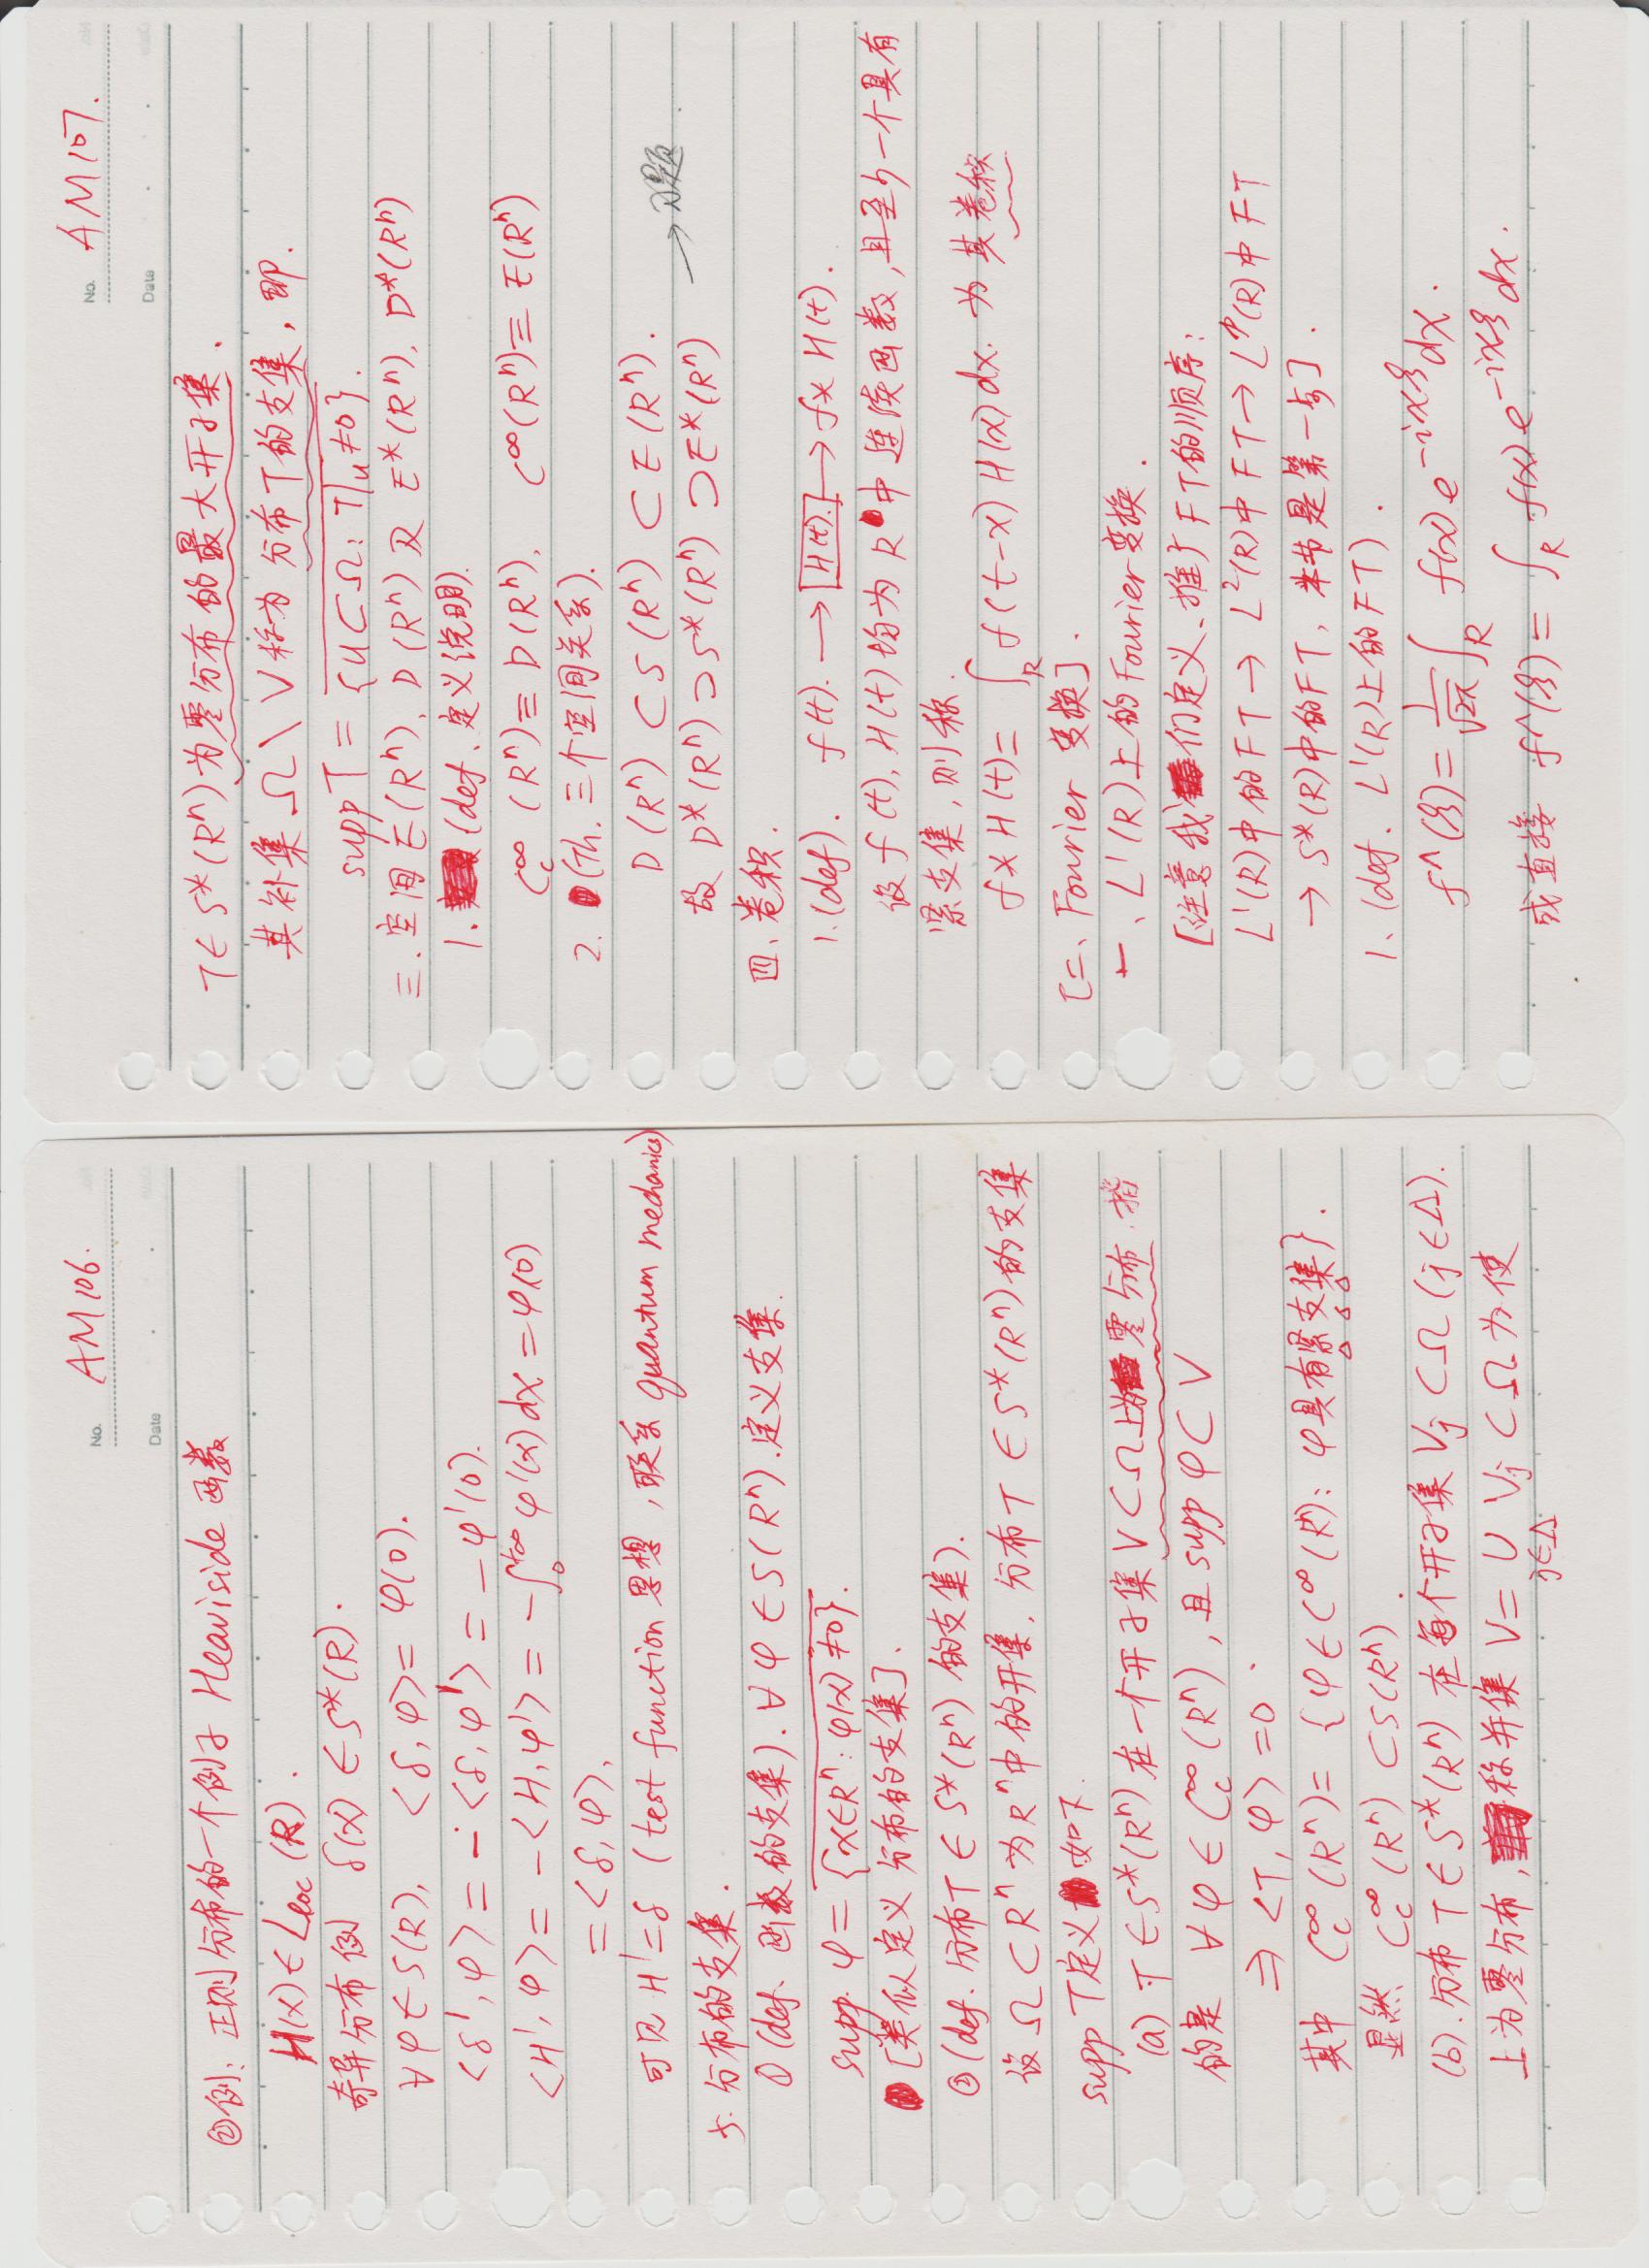 No. AM106.
Date
②例: 正则分布的一个例子 Heaviside 函数
H(x)∈Lloc(R).
奇异分布例 δ(x)∈S*(R).
∀φ∈S(R), <δ,φ>=φ(0).
<δ',φ>=-<δ,φ'>=-φ'(0).
<H',φ>=-<H,φ'>=-∫₀^{+∞}φ'(x)dx=φ(0)
=<δ,φ>,
可见 H'=δ (test function 思想, 联系 quantum mechanics)
5. 分布的支集.
①(def. 函数的支集). ∀φ∈S(Rⁿ).定义支集.
supp. φ= \overline{{x∈Rⁿ: φ(x)≠0}}.
[类似定义分布的支集].
②(def. 分布T∈S*(Rⁿ)的支集).
设Ω⊂Rⁿ为Rⁿ中的开集, 分布T∈S*(Rⁿ)的支集
supp T定义如下.
(a) T∈S*(Rⁿ)在一个开子集V⊂Ω上为零分布.指
的是 ∀φ∈C_c^∞(Rⁿ), 且supp φ⊂V
⇒<T,φ>=0.
其中 C_c^∞(Rⁿ)={φ∈C^∞(Rⁿ): φ具有紧支集}.
显然 C_c^∞(Rⁿ)⊂S(Rⁿ).
(b).分布T∈S*(Rⁿ)在每个开子集Vj⊂Ω(j∈Δ).
上为零分布, 称并集V=∪_{j∈Δ} Vj⊂Ω为使
No. AM107.
Date
T∈S*(Rⁿ)为零分布的最大开子集.
其补集Ω\V称为分布T的支集, 即.
supp T= \overline{{U⊂Ω: T|_U≠0}}.
三.空间E(Rⁿ), D(Rⁿ)及E*(Rⁿ), D*(Rⁿ)
1.(def、定义说明).
C_c^∞(Rⁿ)≡D(Rⁿ), C^∞(Rⁿ)≡E(Rⁿ)
2.(Th. 三个空间关系).
D(Rⁿ)⊂S(Rⁿ)⊂E(Rⁿ).
故D*(Rⁿ)⊃S*(Rⁿ)⊃E*(Rⁿ) →习题.
四、卷积.
1.(def). f(t).→[H(t).]→f*H(t).
设f(t),H(t)均为R中连续函数,且至少一个具有
紧支集,则称.
f*H(t)=∫_R f(t-x)H(x)dx. 为其卷积
[二、Fourier 变换].
一、L¹(R)上的Fourier变换.
[注意我们定义、推广FT的顺序:
L¹(R)中的FT→L²(R)中FT→Lᵖ(R)中FT
→S*(R)中的FT, 本节是第一步].
1、(def. L¹(R)上的FT).
f^(ξ)=\frac{1}{√2π}∫_R f(x)e^{-ixξ}dx.
或直接 f^(ξ)=∫_R f(x)e^{-ixξ}dx.